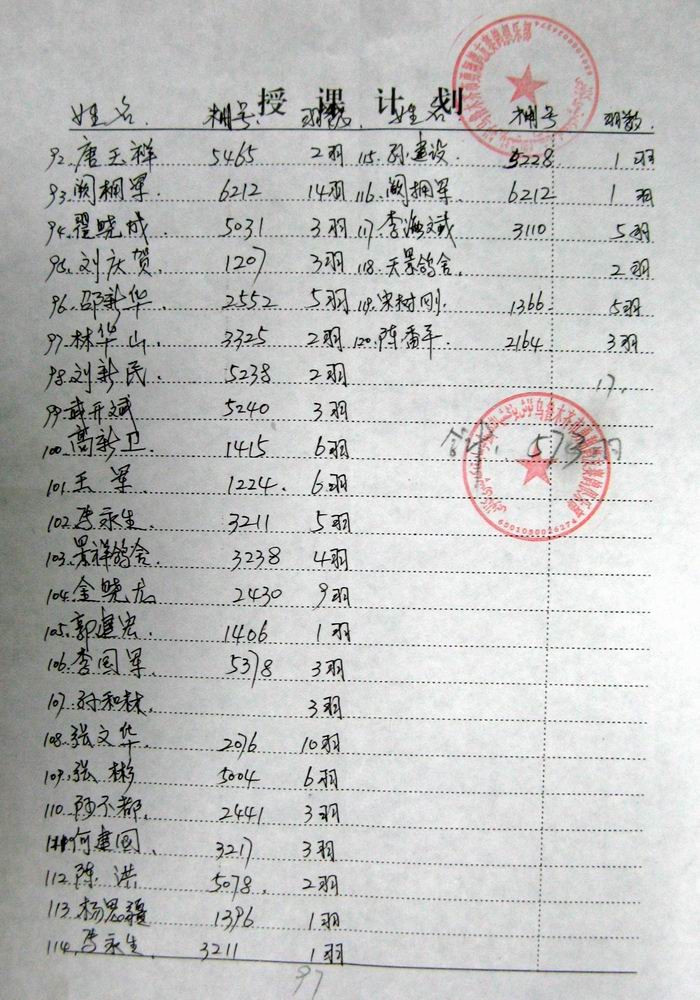 授课计划
姓名 棚号 羽数 姓名 棚号 羽数
92. 唐玉祥 5465 2羽 115. 孙建设 5228 1羽
93. 阙拥军 6212 14羽 116. 阙拥军 6212 1羽
94. 翟晓成 5031 3羽 117. 李海斌 3110 5羽
95. 刘庆贺 1207 3羽 118. 天景鸽舍 2羽
96. 邵新华 2552 5羽 119. 宋树刚 1366 5羽
97. 林华山 3325 2羽 120. 陈番平 2164 3羽
98. 刘新民 5238 2羽
17.
99. 5240 3羽
100. 高新卫 1415 6羽 573羽
101. 王军 1224. 6羽
102. 李永生 3211 5羽
103. 景祥鸽舍 3238 4羽
104. 金晓龙 2430 9羽
105. 郭建宏 1406 1羽
106. 李国军 5378 3羽
107. 孙和林 3羽
108. 张文华 2076 10羽
109. 张彬 5004 6羽
110. 2441 3羽
111. 何建国 3217 3羽
112. 陈洪 5078. 2羽
113. 杨思疆 1396 1羽
114. 李永生 3211 1羽
97